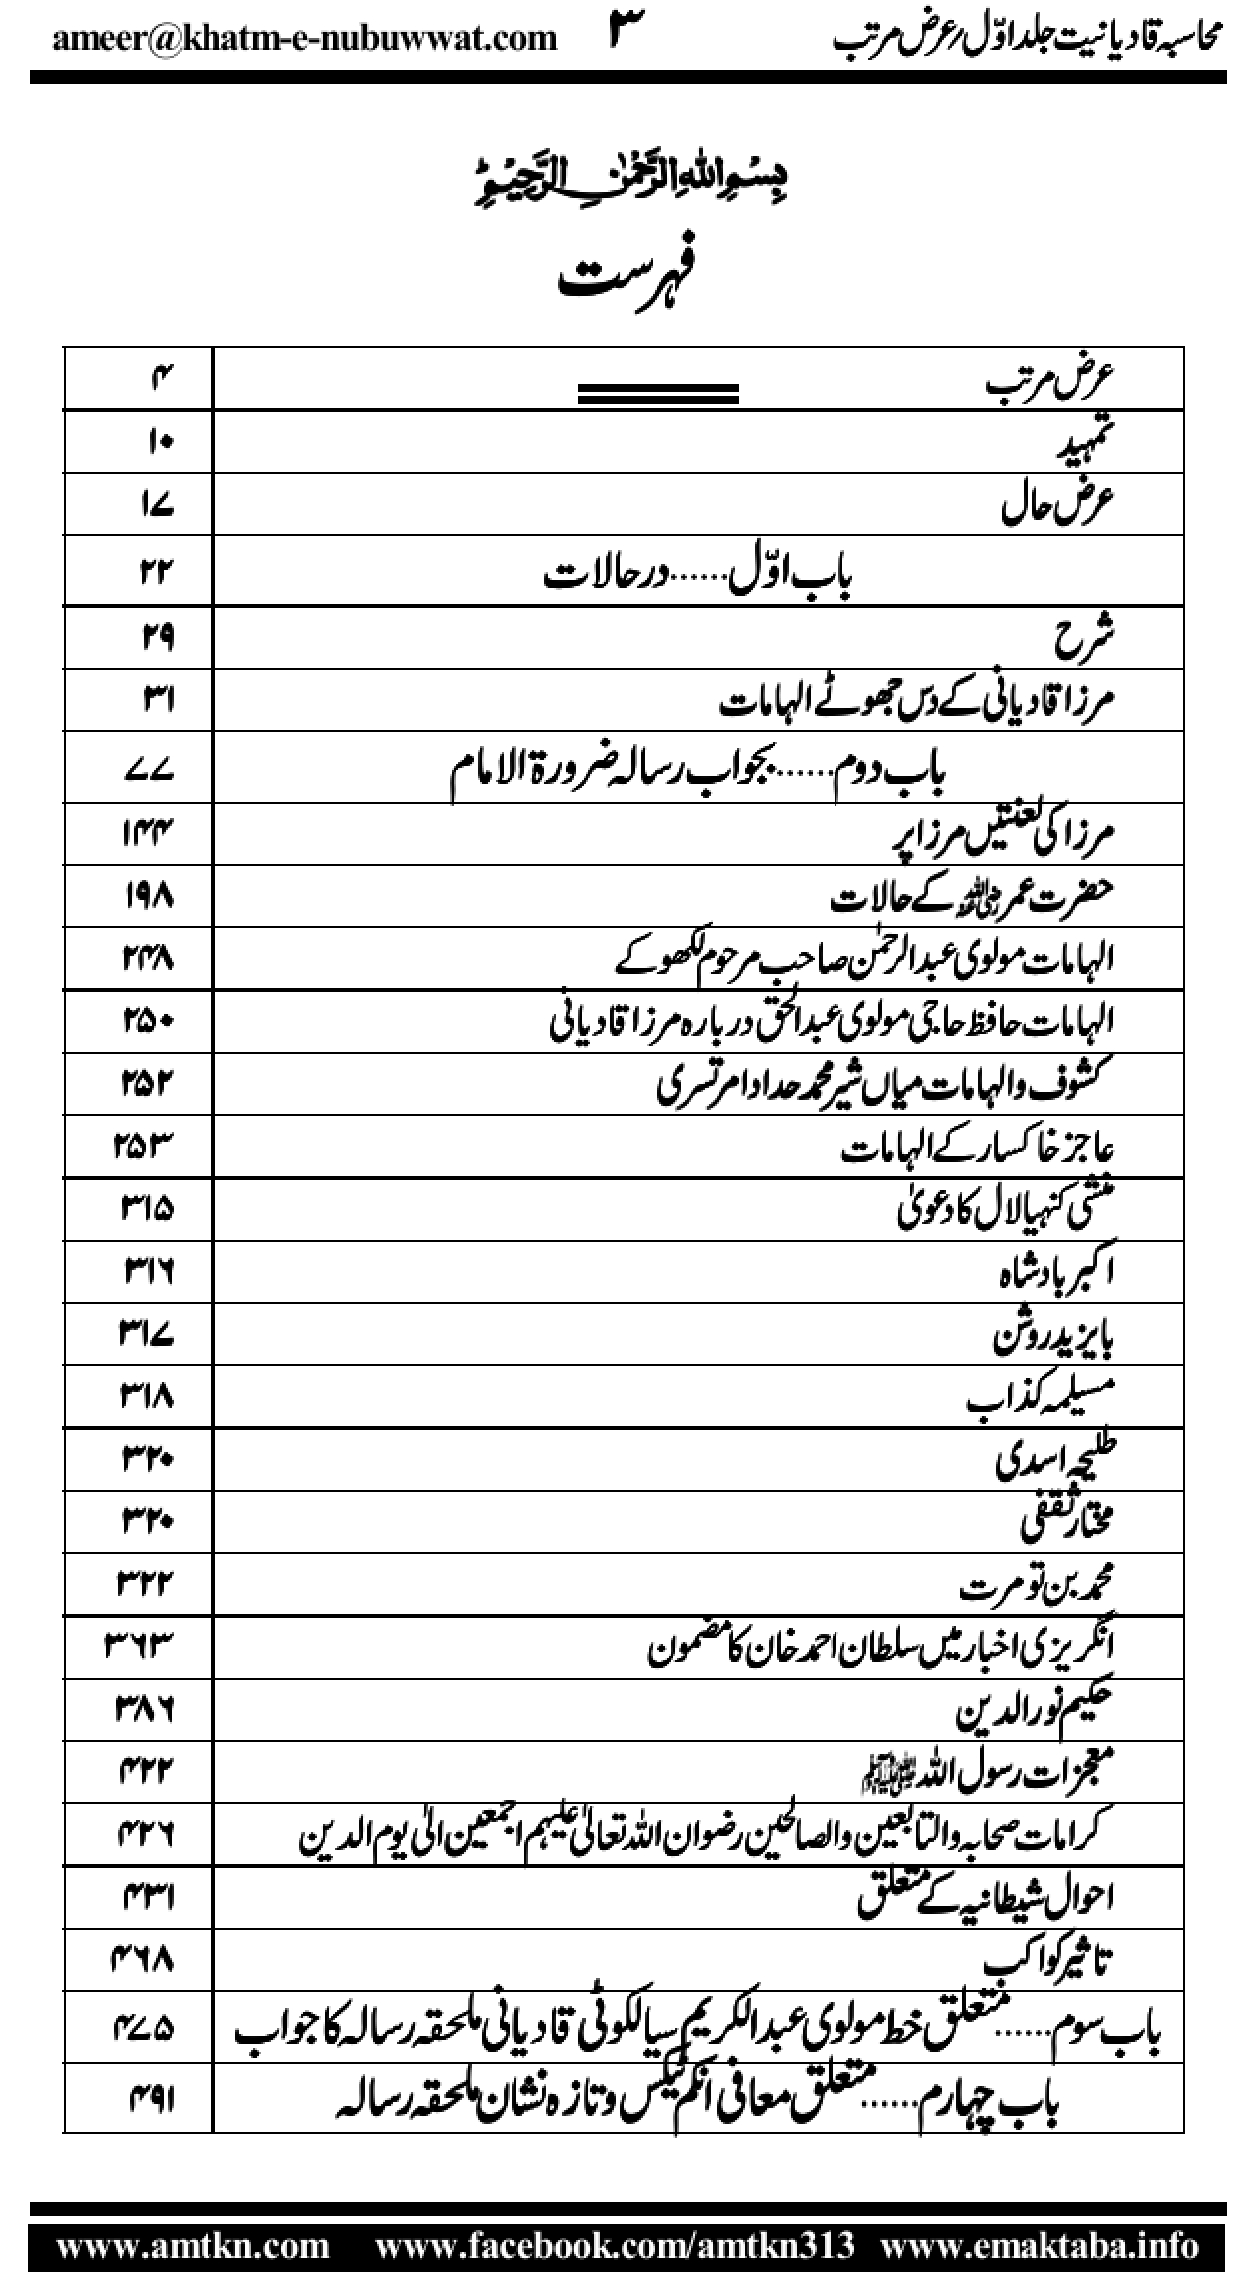 محاسبہ قادیانیت جلد اوّل؍عرض مرتب ۳ ameer@khatm-e-nubuwwat.com
بِسْمِ اللّٰهِ الرَّحْمٰنِ الرَّحِیْمِ
فہرست
عرض مرتب ۴
تمہید ۱۰
عرض حال ۱۷
باب اوّل......درحالات ۲۲
شرح ۲۹
مرزا قادیانی کے دس جھوٹے الہامات ۳۱
باب دوم......بجواب رسالہ ضرورۃ الامام ۷۷
مرزا کی لعنتیں مرزا پر ۱۴۴
حضرت عمر رضی اللہ عنہ کے حالات ۱۹۸
الہامات مولوی عبدالرحمٰن صاحب مرحوم لکھوکے ۲۴۸
الہامات حافظ حاجی مولوی عبدالحق دربارہ مرزا قادیانی ۲۵۰
کشوف والہامات میاں شیر محمد حداد امرتسری ۲۵۲
عاجز خاکسار کے الہامات ۲۵۳
منشی کنہیا لال کا دعویٰ ۳۱۵
اکبر بادشاہ ۳۱۶
بایزید روشن ۳۱۷
مسیلمہ کذاب ۳۱۸
طلیحہ اسدی ۳۲۰
مختار ثقفی ۳۲۰
محمد بن تومرت ۳۲۲
انگریزی اخبار میں سلطان احمد خان کا مضمون ۳۶۳
حکیم نورالدین ۳۸۶
معجزات رسول اللہ ﷺ ۴۲۲
کرامات صحابہ والتابعین والصالحین رضوان اللہ تعالیٰ علیہم اجمعین الیٰ یوم الدین ۴۲۶
احوال شیطانیہ کے متعلق ۴۳۱
تاثیر کواکب ۴۶۸
باب سوم......متعلق خط مولوی عبدالکریم سیالکوٹی قادیانی ملحقہ رسالہ کا جواب ۴۷۵
باب چہارم......متعلق معافی انکم ٹیکس و تازہ نشان ملحقہ رسالہ ۴۹۱
www.amtkn.com www.facebook.com/amtkn313 www.emaktaba.info